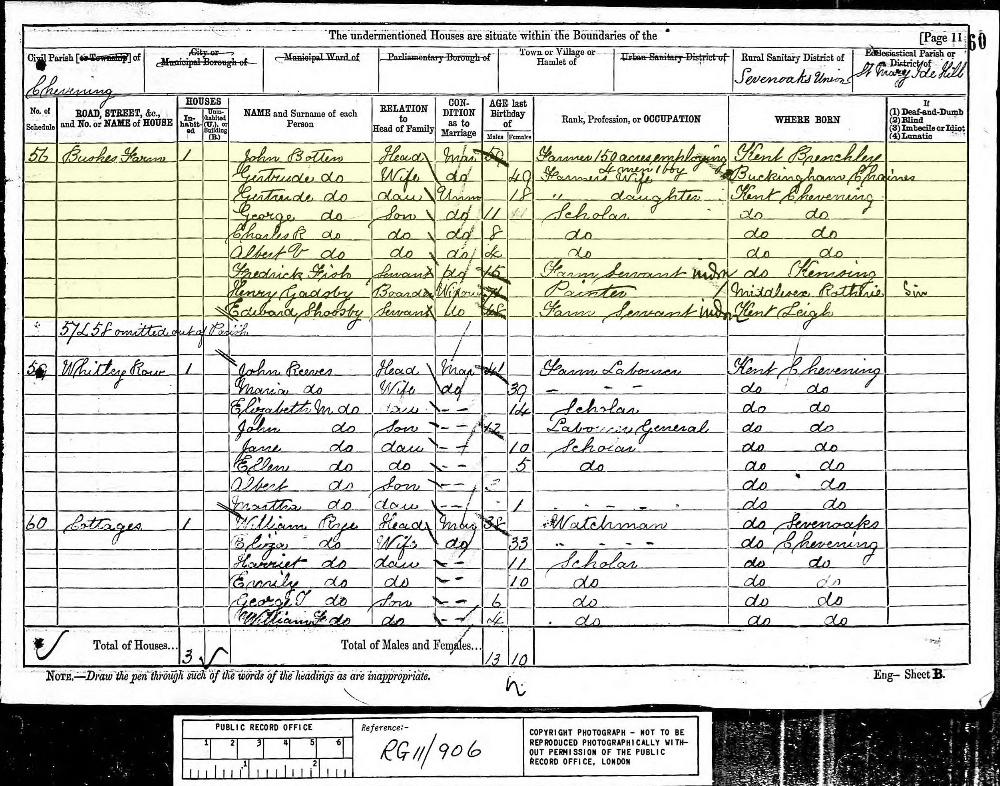 The undermentioned Houses are situate within the Boundaries of the
[Page 11
60
Civil Parish [or Township] of
City or Municipal Borough of
Municipal Ward of
Parliamentary Borough of
Town or Village or Hamlet of
Urban Sanitary District of
Rural Sanitary District of
Ecclesiastical Parish or District of
Chevening
Sevenoaks Union
St Mary Ide Hill
No. of Schedule
ROAD, STREET, &c., and No. or NAME of HOUSE
HOUSES
In-habit-ed
Uninhabited (U.), or Building (B.)
NAME and Surname of each Person
RELATION to Head of Family
CON-DITION as to Marriage
AGE last Birthday of
Males
Females
Rank, Profession, or OCCUPATION
WHERE BORN
If
(1) Deaf-and-Dumb
(2) Blind
(3) Imbecile or Idiot
(4) Lunatic
56 Farm 1 John Botten Head Mar 59 Farmer 150 acres employing 4 men 1 boy Kent Brenchley
Gertrude do Wife do 49 Farmers Wife Buckingham
Gertrude do dau Unm 18 " daughter Kent Chevening
George do Son do 11 Scholar do do
Charles R do do do 8 do do do
Albert V do do do 4 do do do
Fredrick Servant do 15 Farm Servant indr do Kemsing
Henry Gadsby Boarder 71 Painter Middlesex
Edward Servant do 48 Farm Servant indr Kent Leigh
57 & 58 omitted out of Parish
59 Whitley Row 1 John Reeves Head Mar 41 Farm Labourer Kent Chevening
Maria do Wife do 39 – – – do do
Elizabeth M do dau – – 14 Scholar do do
John do Son – – 12 Labourer General do do
Jane do dau – – 10 Scholar do do
Ellen do do – – 5 do do do
Albert do Son – – 3 do do
Martha do dau – – 1 – – – – – do do
60 Cottages 1 William Head Mar 38 Watchman do Sevenoaks
Eliza do Wife do 33 – – – – do Chevening
Harriet do dau – – 11 Scholar do do
Emily do do 10 do do do
George T do Son – – 6 do do do
William F do do – – 4 do do do
Total of Houses... 3
Total of Males and Females... 13 10
NOTE.—Draw the pen through such of the words of the headings as are inappropriate.
Eng– Sheet B.
PUBLIC RECORD OFFICE
1 2 3 4 5 6
1 2
Reference:-
RG11/906
COPYRIGHT PHOTOGRAPH – NOT TO BE
REPRODUCED PHOTOGRAPHICALLY WITH-
OUT PERMISSION OF THE PUBLIC
RECORD OFFICE, LONDON